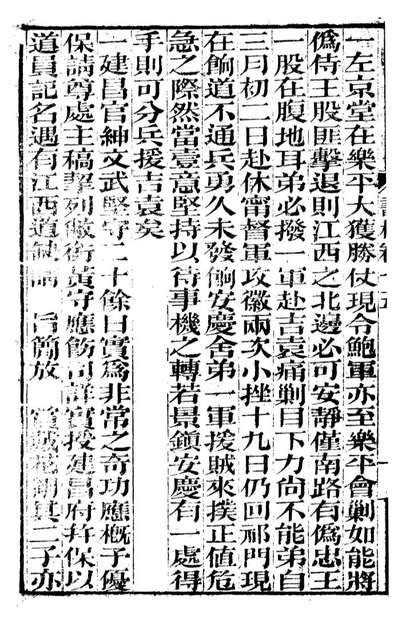 一左京堂在樂平大獲勝仗現令鮑軍亦至樂平會剿如能將
僞侍王股匪擊退則江西之北邊必可安靜僅南路有僞忠王
一股在腹地耳弟必撥一軍赴吉袁痛剿目下力尚不能弟自
三月初二日赴休甯督軍攻徽兩次小挫十九日仍回祁門現
在餉道不通兵勇久未發餉安慶舍弟一軍援賊來撲正値危
急之際然當壹意堅持以待事機之轉若景鎭安慶有一處得
手則可分兵援吉袁矣
一建昌官紳文武堅守二十餘日實爲非常之奇功應概予優
保請尊處主稿挈列敝銜黃守應飭司詳實授建昌府幷保以
道員記名遇有江西道缺請 旨簡放 其二子亦